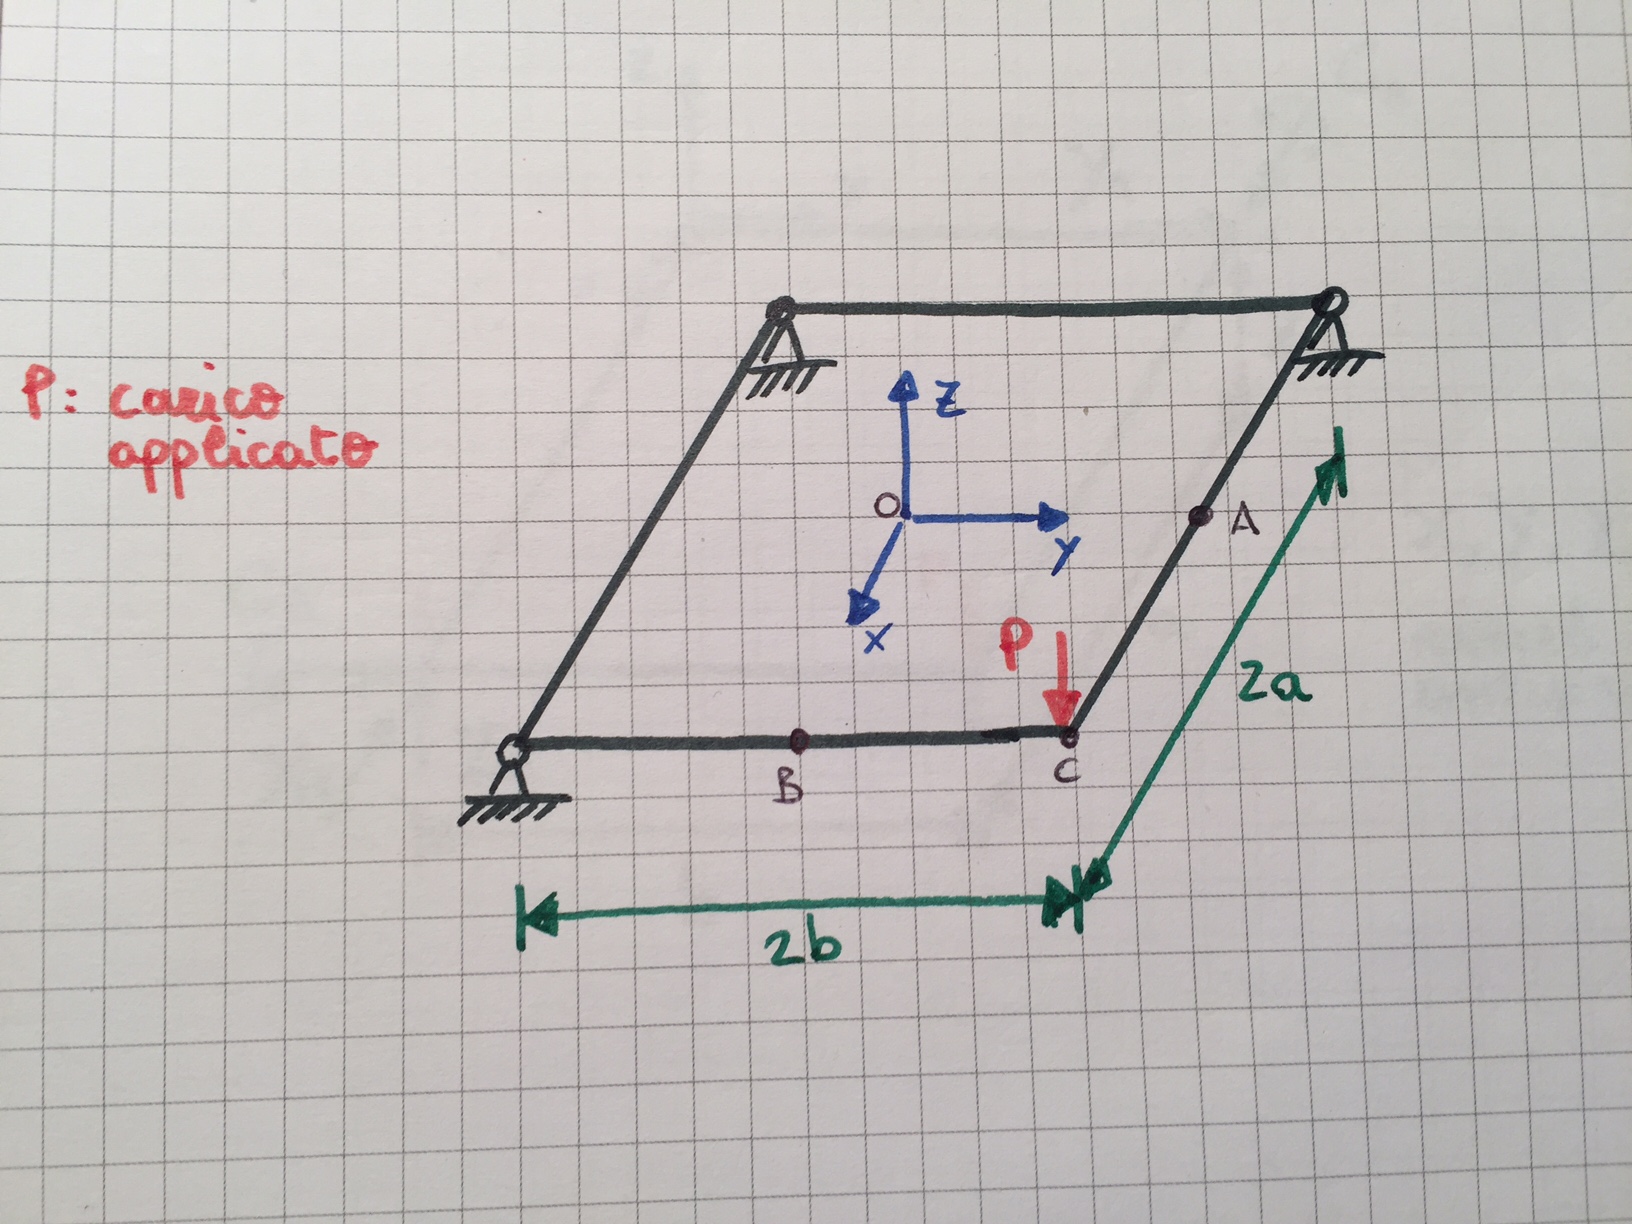 P: carico
applicato
z
O
y
x
A
P
2a
B
C
2b